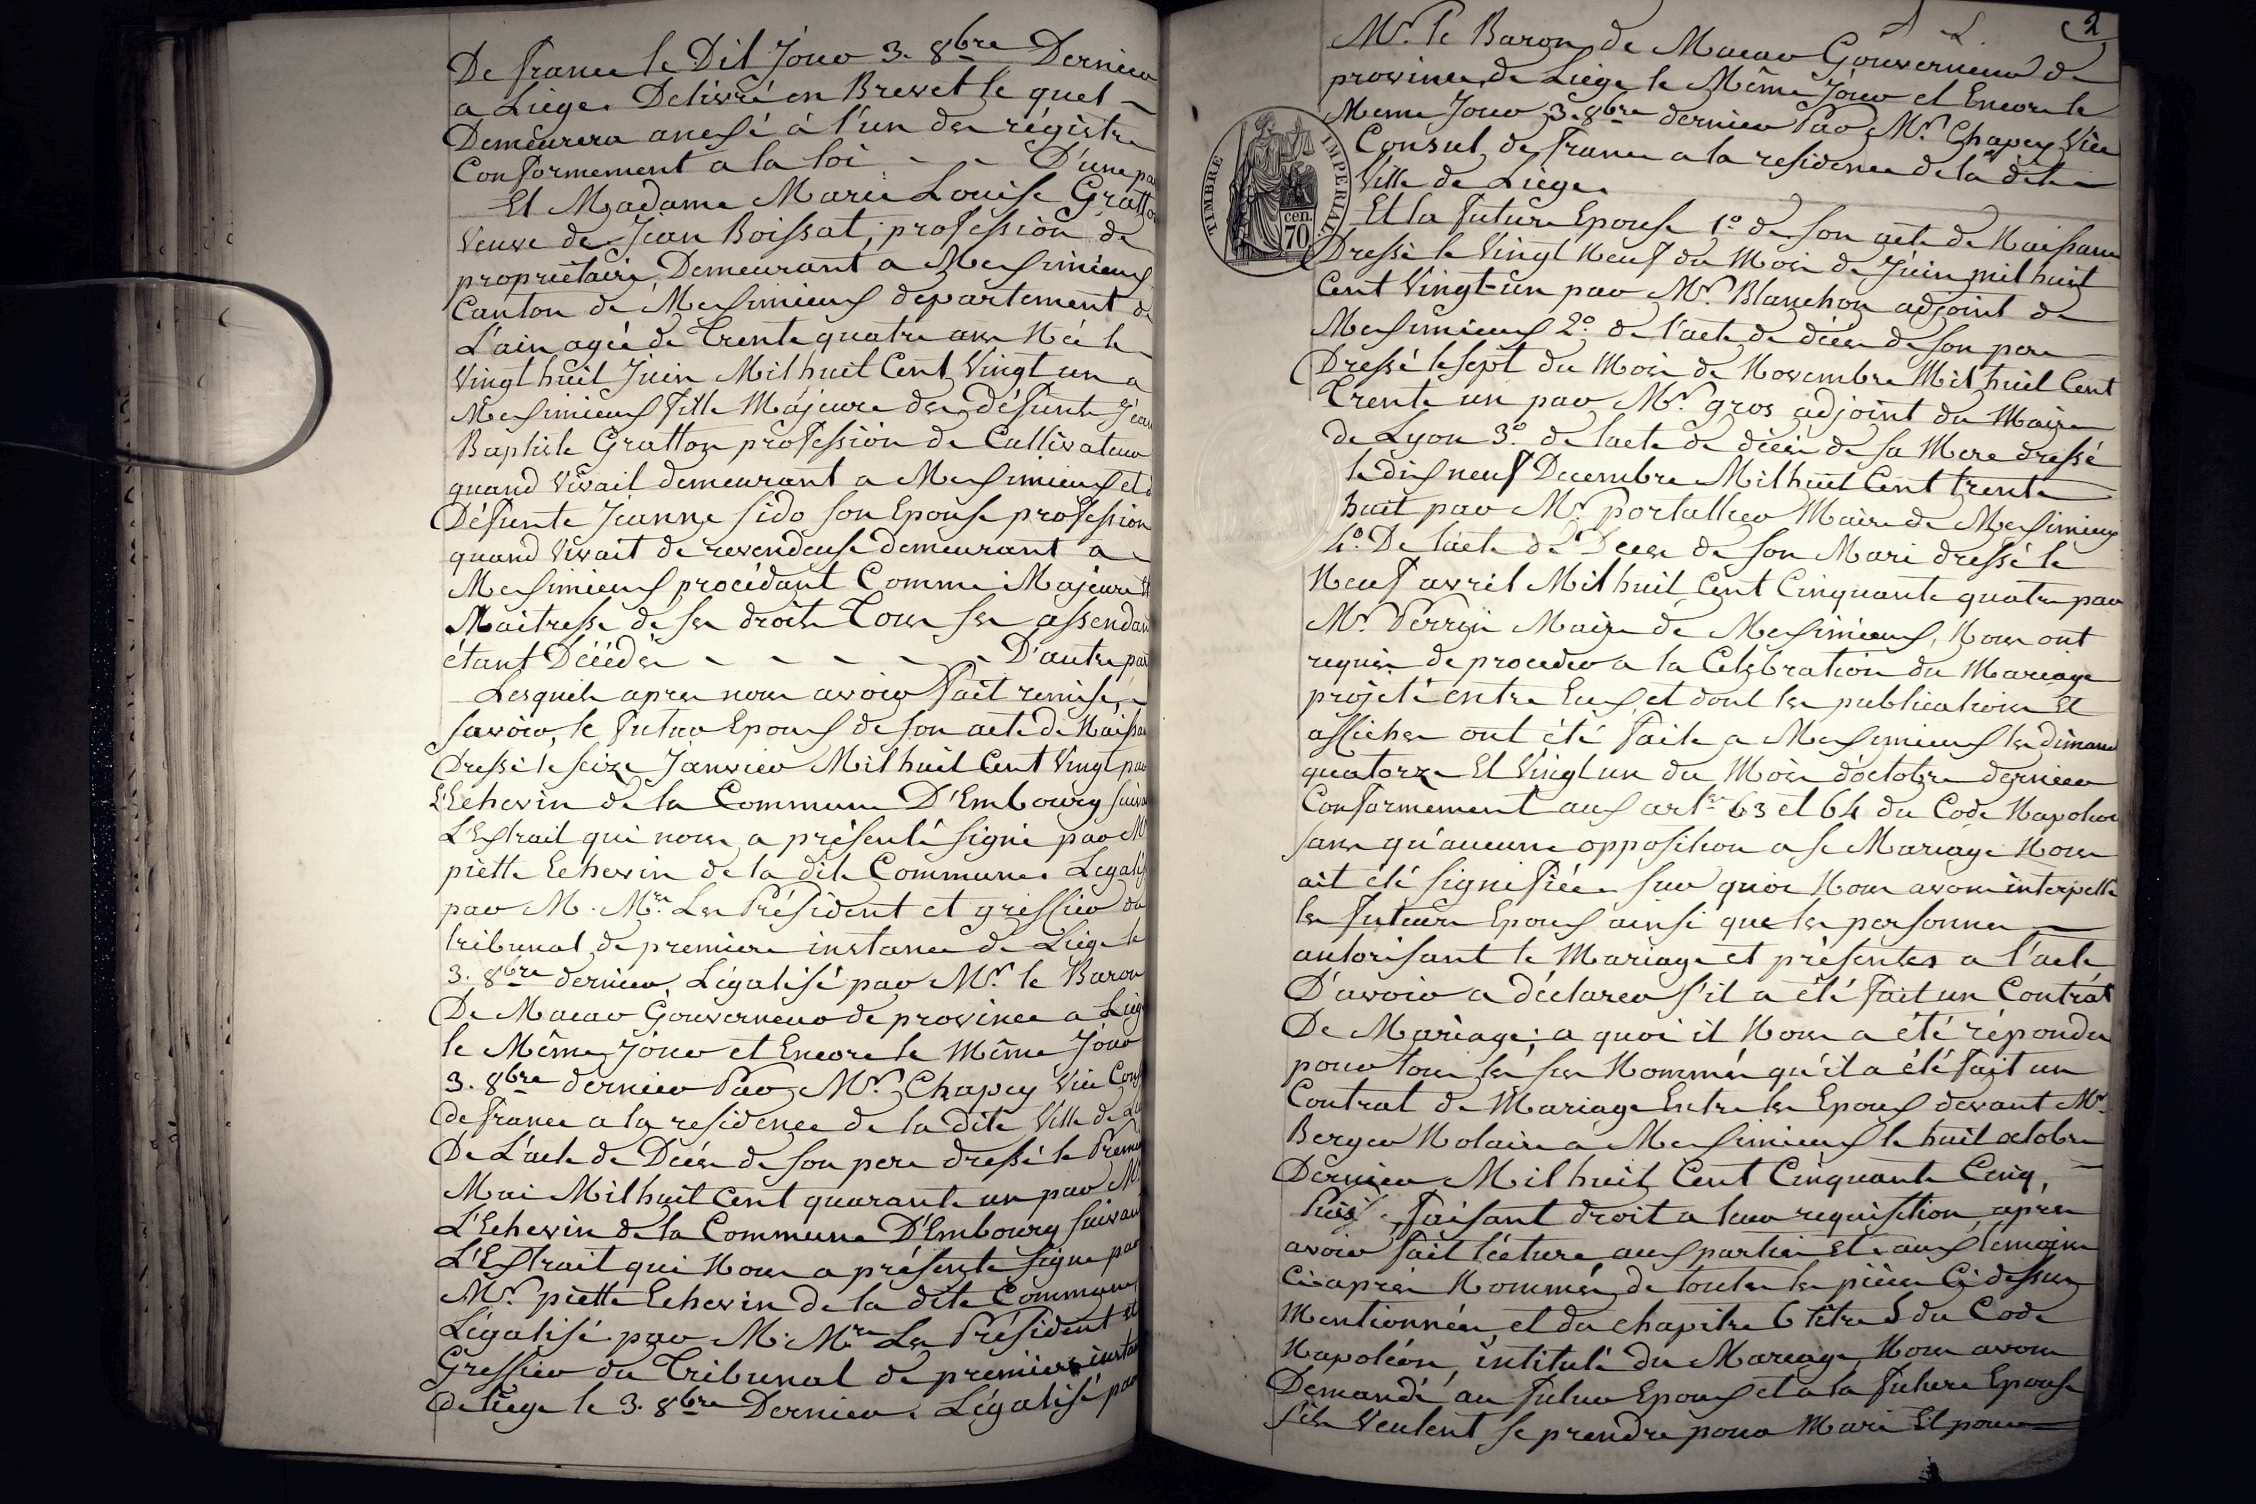 De france le Dit Jour 3. 8bre Dernier
a Liége. Delivré en Brevet le quel
Demeurera anexé á l'un des régistre
Conformement a la loi - - D'une pa
Et Madame Marie Louise Gratto
Veuve de Jean Boissat, profession de
propriétaire, Demeurant a Meximieux
Canton de Meximieux departement de
L'ain agée de Trente quatre ans Née le
Vingt huit Juin Mil huit Cent Vingt un a
Meximieux fille Majeure des défunts Jean
Baptiste Gratton profession de Cultivateur
quand vivait demeurant a Meximieux et
Défunte Jeanne Sido son Epouse profession
quand vivait de revendeuse demeurant a
Meximieux procédant Comme Majeure et
Maitresse de ses droits Tous ses assendan
étant Décédés - - - - - - D'autre par
Lesquels apres nous avoir fait remise,
savoir, le futur Epoux de son acte de Naissa
Dressé le seize Janvier Mil huit Cent Vingt par
L'Echevin de la Commune D'Embourg suivan
L'Extrait qui nous a présenté signé par Mr
piette Echevin de la dite Commune. Legalis
par M. Mrs Les Président et greffier du
tribunal de premiere instance de Liége le
3. 8bre dernier, Légalisé par Mr. le Baron
De Macar Gouverneur de province a Liég
le Même Jour et Encore le Même Jour
3. 8bre dernier Par Mr. Chapey Vice Cons
de france a la residence de la dite Ville de Li
De L'acte de Décés de son pere dressé le Premie
Mai Mil huit Cent quarante un par Mr
L'Echevin de la Commune D'Embourg suivant
L'Extrait qui Nous a présenté signe par
Mr. piette Echevin de la dite Commune,
Légalisé par M. Mrs Les Président et
Greffier du Tribunal de premiere instan
de liege le 3. 8bre Dernier. Légalisé par
2
Mr. le Baron de Macar Gouverneur de
province de Liége le Même Jour et Encore le
Meme Jour 3. 8bre dernier Par Mr. Chapey Vice
Consul de france a la residence de la dite
Ville de Liége.
TIMBRE IMPERIAL
cen.
70
Et la future Epouse 1º de son acte de Naissance
Dressé le Vingt Neuf du Mois de Juin mil huit
Cent Vingt-un par Mr. Blanchon adjoint de
Meximieux 2º de l'acte de décés de son pere
Dressé le sept du Mois de Novembre Mil huit Cent
Trente un par Mr. gros adjoint du Maire
de Lyon 3º de lacte de décés de sa Mere dressé
le dix neuf Decembre Mil huit Cent trente
huit par Mr portallier Maire de Meximieux
4º De lacte de Deces de son Mari dressé le
Neuf avril Mil huit Cent Cinquante quatre par
Mr. Perrin Maire de Meximieux, Nous ont
requis de proceder a la Celebration du Mariage
projeté entre Eux et dont les publications Et
affiches ont été faite a Meximieux les dimanc
quatorze Et Vingt un du Mois d'octobre dernier
Conformement aux artes 63 et 64 du Code Napoleon
sans qu'aucune opposition a se Mariage Nous
ait été signifiée. sur quoi Nous avons interpellé
les futurs Epoux ainsi que les personnes
autorisant le Mariage et présentes a l'acte
D'avoir a déclarer s'il a été fait un Contrát
De Mariage: a quoi il Nous a été répondu
pour tous les sus Nommés qu'il a été fait un
Contrat de Mariage Entre les Epoux devant Mr.
Berger Notaire a Meximieux le huit octobre
Dernier Mil huit Cent Cinquante Cinq,
Puis, faisant droit a leur requisition, aprés
avoir fait lécture aux parties Et aux temoins
Ci-aprés Nommés, de toutes les piéces Ci dessus
Mentionnées, et du chapitre 6 titre 5 du Code
Napoléon, intitulé du Mariage, Nous avons
Demandé au futur Epoux et a la future Epouse
s'ils veulent se prendre pour Mari Et pour